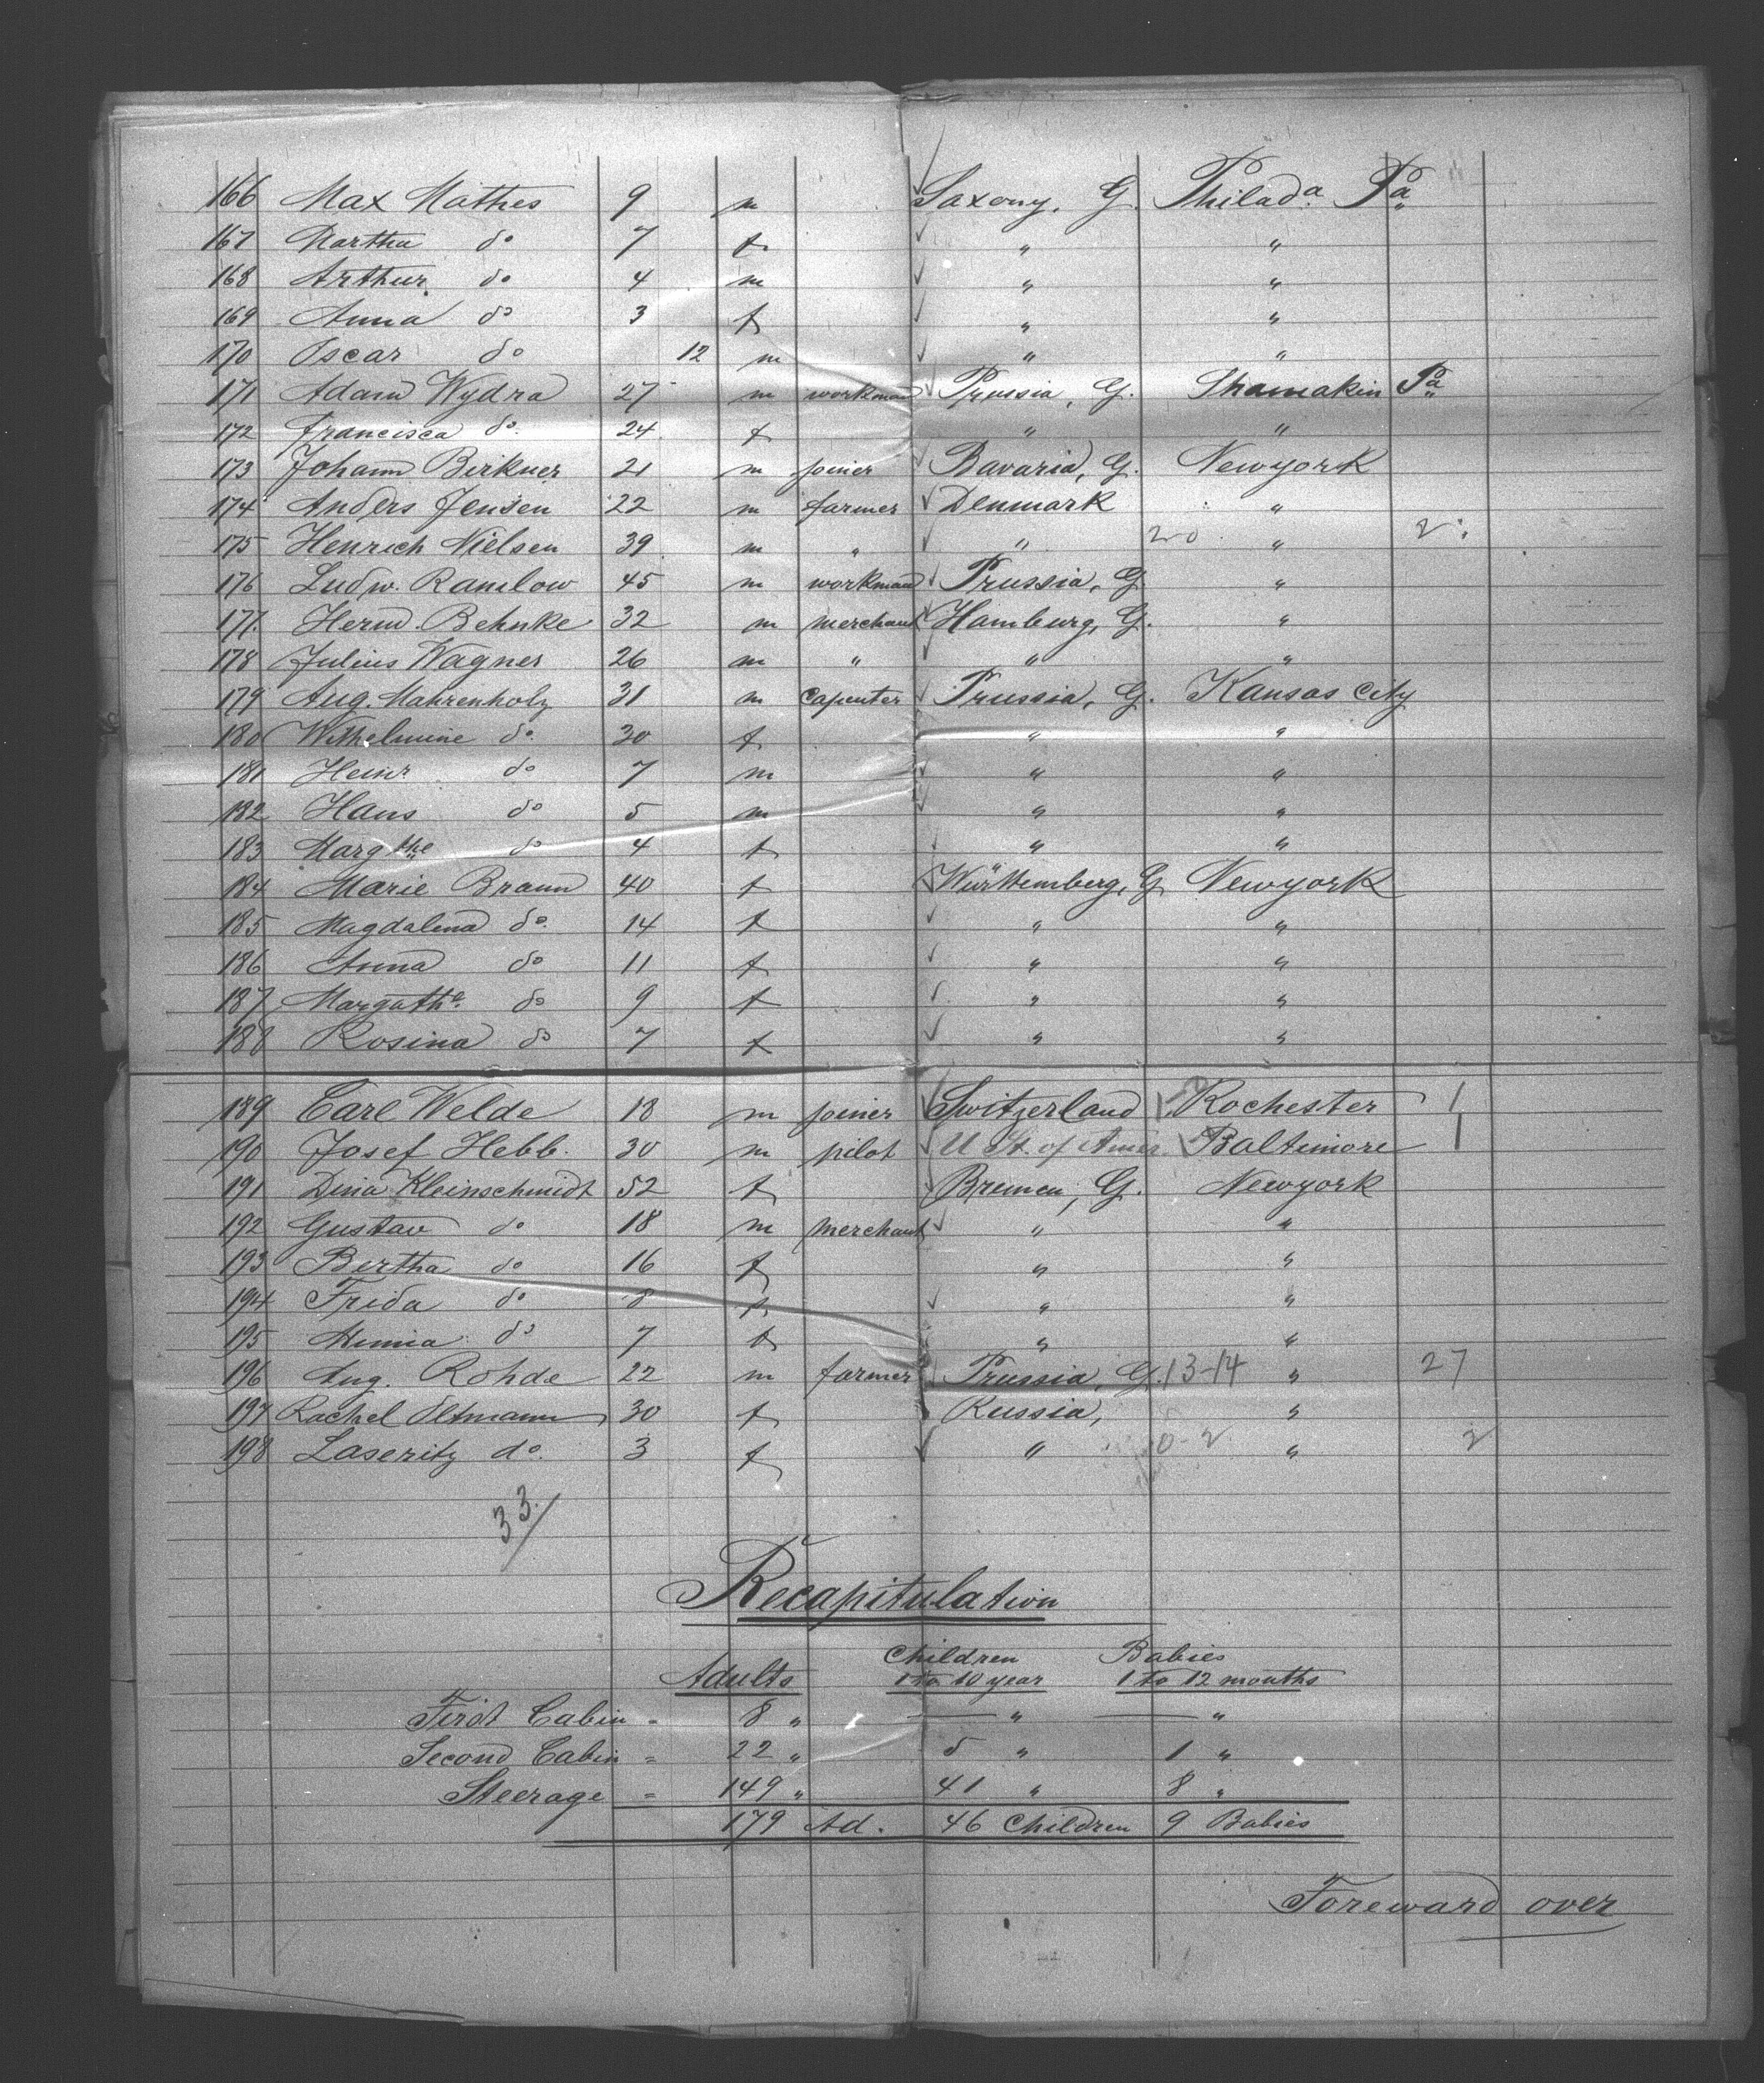 166 Max Mathes 9 m Saxony, G. Philad.a Pa
167 Martha do 7 f " "
168 Arthur do 4 m " "
169 Anna do 3 f " "
170 Oscar do 12 m " "
171 Adam Wydra 27 m workman Prussia, G. Shamakin Pa
172 Francisca do. 24 f " "
173 Johann Birkner 21 m joiner Bavaria, G. Newyork
174 Anders Jensen 22 m farmer Denmark "
175 Henrich Nielsen 39 m " " 20 " 2
176 Ludw. Ramlow 45 m workman Prussia, G. "
177. Herm. Behnke 32 m merchant Hamburg, G. "
178 Julius Wagner 26 m " " "
179 Aug. Mahrenholz 31 m capenter Prussia, G. Kansas City
180 Wilhelmine do. 30 f " "
181 Heinr. do 7 m " "
182 Hans do 5 m " "
183 Margthe do 4 f " "
184 Marie Braun 40 f Württemberg, G. Newyork
185 Magdalena do. 14 f " "
186 Anna do 11 f " "
187 Margathe. do 9 f " "
188 Rosina do 7 f " "
189 Carl Welde 18 m joiner Switzerland Rochester 1
190 Josef Hebb. 30 m pilot U St. of Amer. Baltimore 1
191 Dina Kleinschmidt 52 f Bremen, G. Newyork
192 Gustav do 18 m merchant " "
193 Bertha do 16 f " "
194 Frida do 8 f " "
195 Minnia do 7 f " "
196 Aug. Rohde 22 m farmer Prussia, G. 13-14 " 27
197 Rachel Oltmann 30 f Russia, "
198 Laseritz do. 3 f " 0-2 " 2
33/
Recapitulation
Adults Children 1 to 10 year Babies 1 to 12 months
First Cabin = 8 " — " — "
Second Cabin = 22 " 5 " 1 "
Steerage = 149 " 41 " 8 "
179 Ad. 46 Children 9 Babies
Foreward over